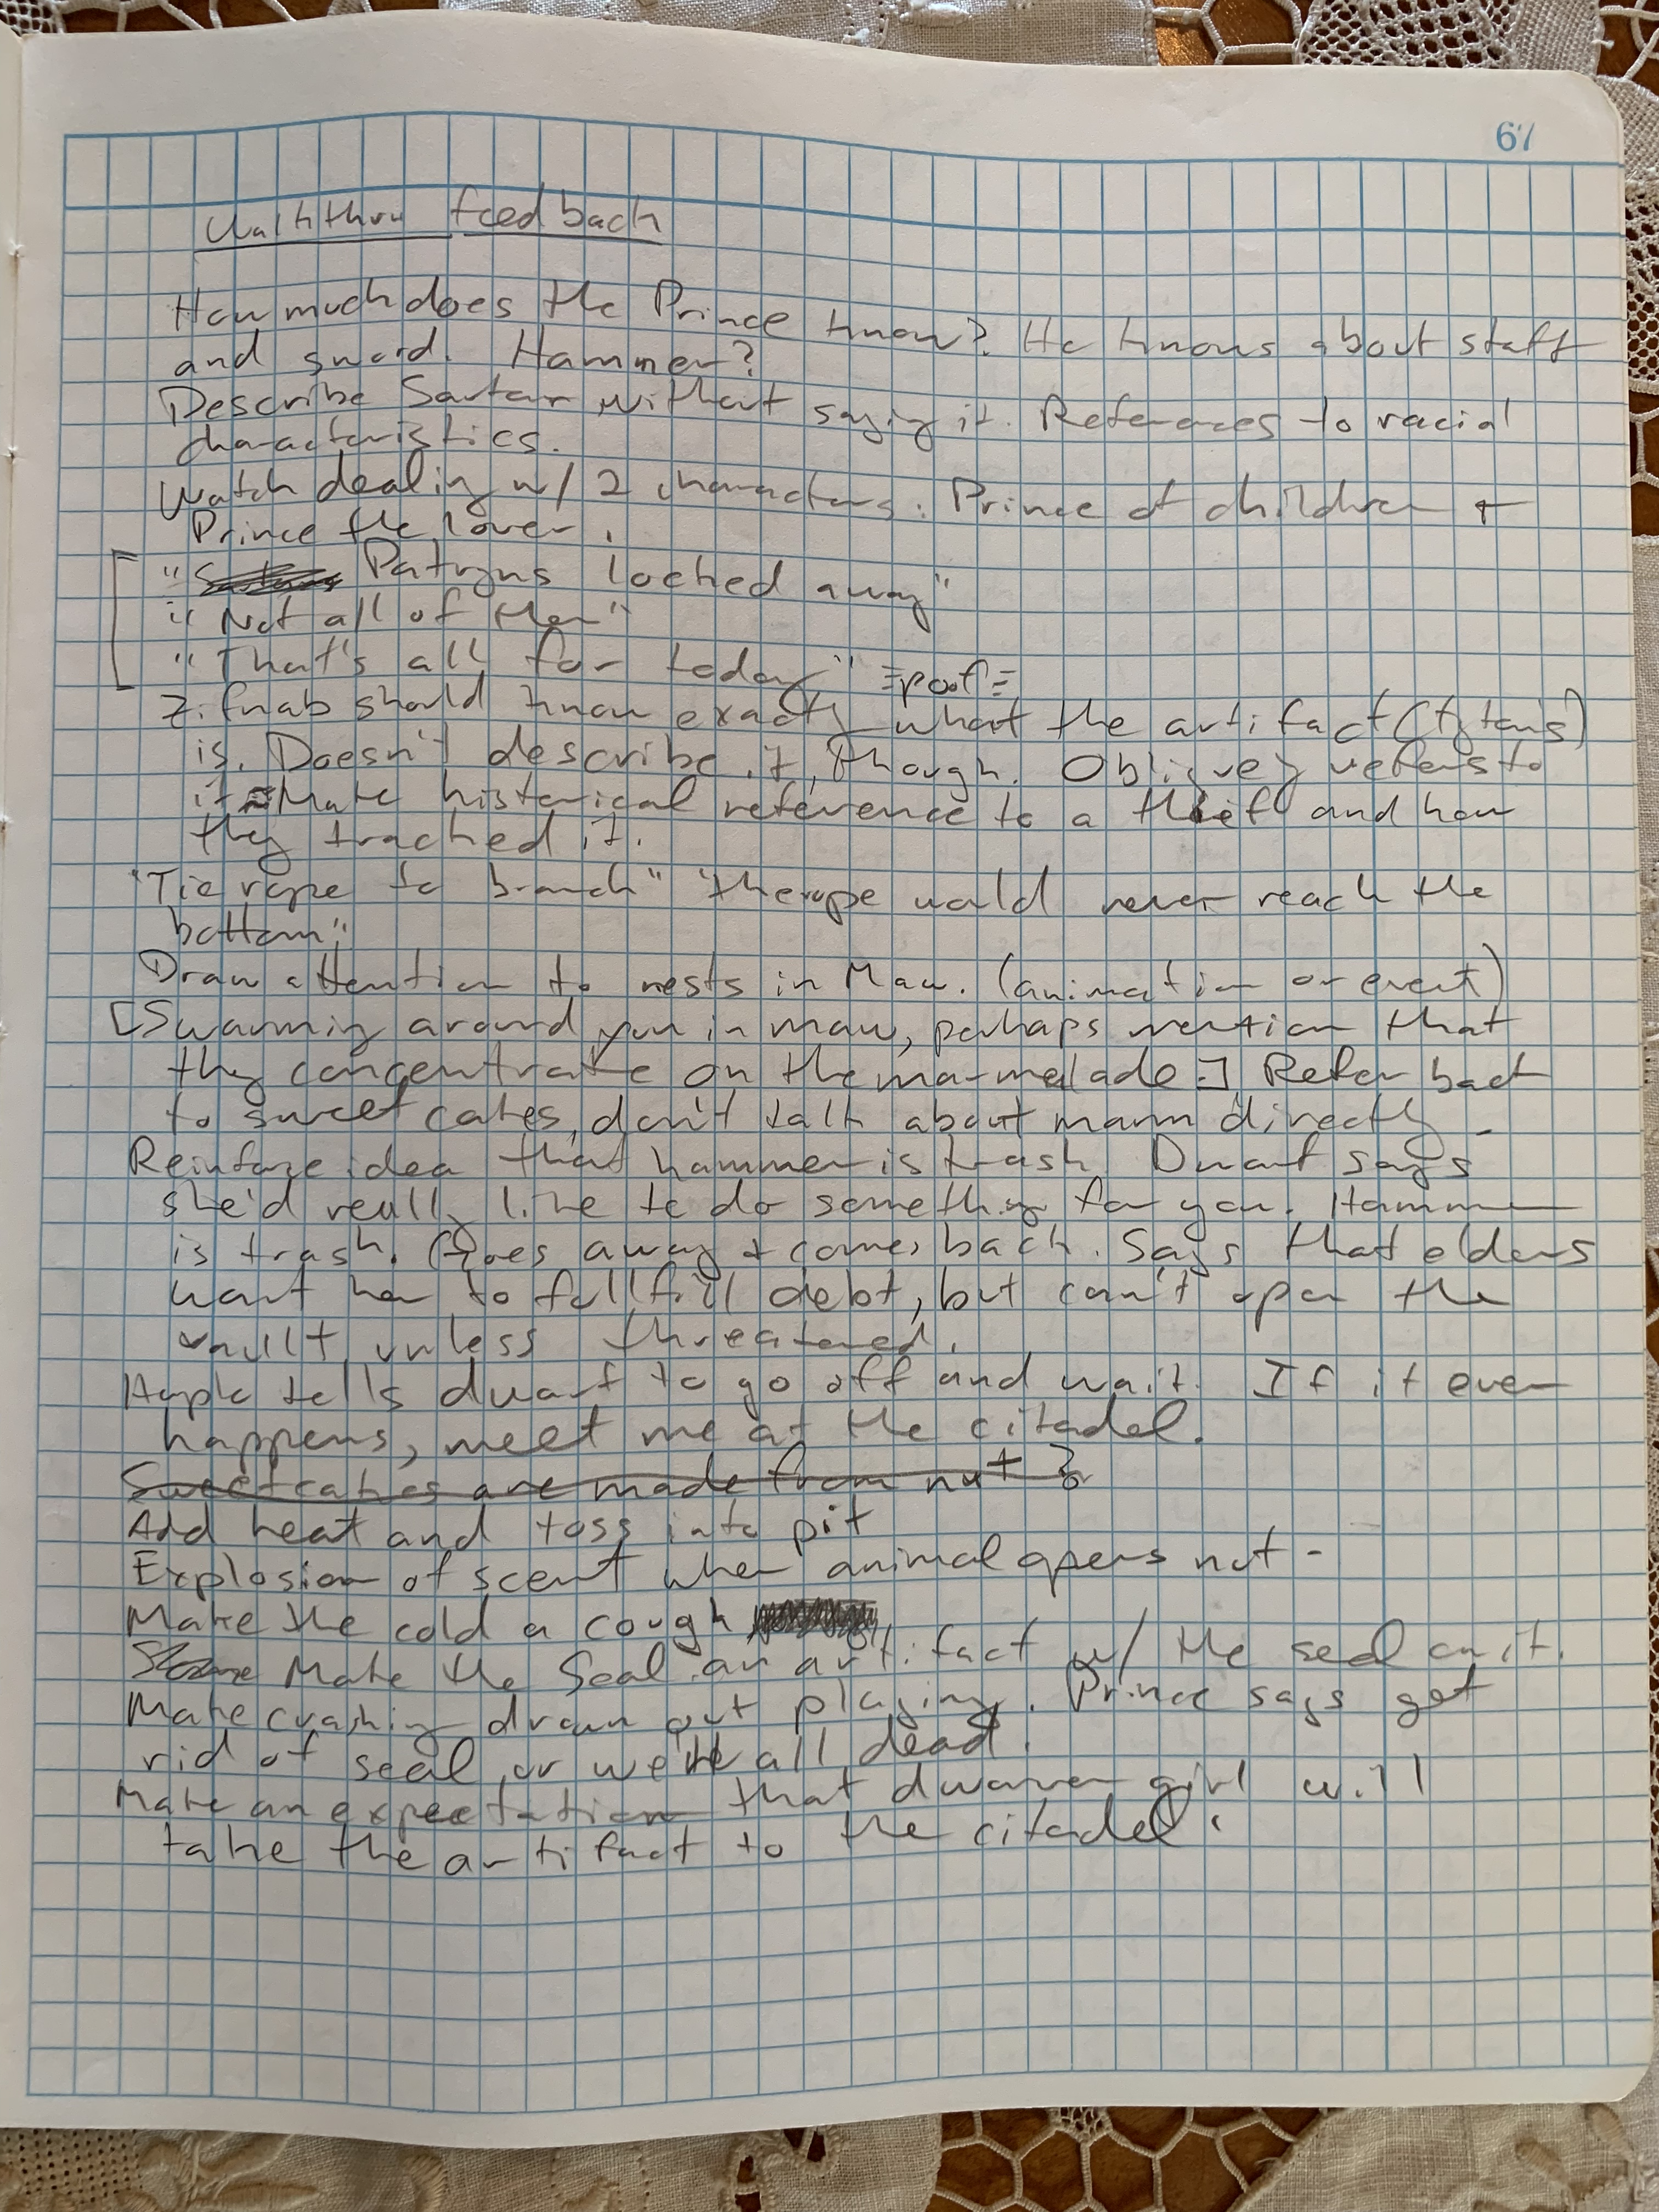 67
Walkthru feedback
How much does the Prince know? He knows about staff
and sword. Hammer?
Describe Sartan without saying it. References to racial
characteristics.
Watch dealing w/ 2 characters: Prince of children +
Prince the lover.
"Patryns locked away"
"Not all of them"
"That's all for today" =poof=
Zifnab should know exactly what the artifact (tytans)
is. Doesn't describe it, though. Obliquely refers to
it. Make historical reference to a thief and how
they tracked it.
"Tie rope to branch" "the rope would never reach the
bottom"
Draw attention to nests in Maw. (animation or event)
[Swarming around you in maw, perhaps mention that
they concentrate on the marmelade.] Refer back
to sweet cakes, don't talk about marm directly.
Reinforce idea that hammer is trash. Dwarf says
she'd really like to do something for you. Hammer
is trash. Goes away + comes back. Says that elders
want her to fullfill debt, but can't open the
vault unless threatened.
Haplo tells dwarf to go off and wait. If it ever
happens, meet me at the citadel.
Sweetcakes are made from nut?
Add heat and toss into pit
Explosion of scent when animal opens nut -
Make the cold a cough
Make the Seal an artifact w/ the seal on it.
Make crashing drawn out playing. Prince says get
rid of seal or we're all dead.
Make an expectation that dwarven girl will
take the artifact to the citadel.